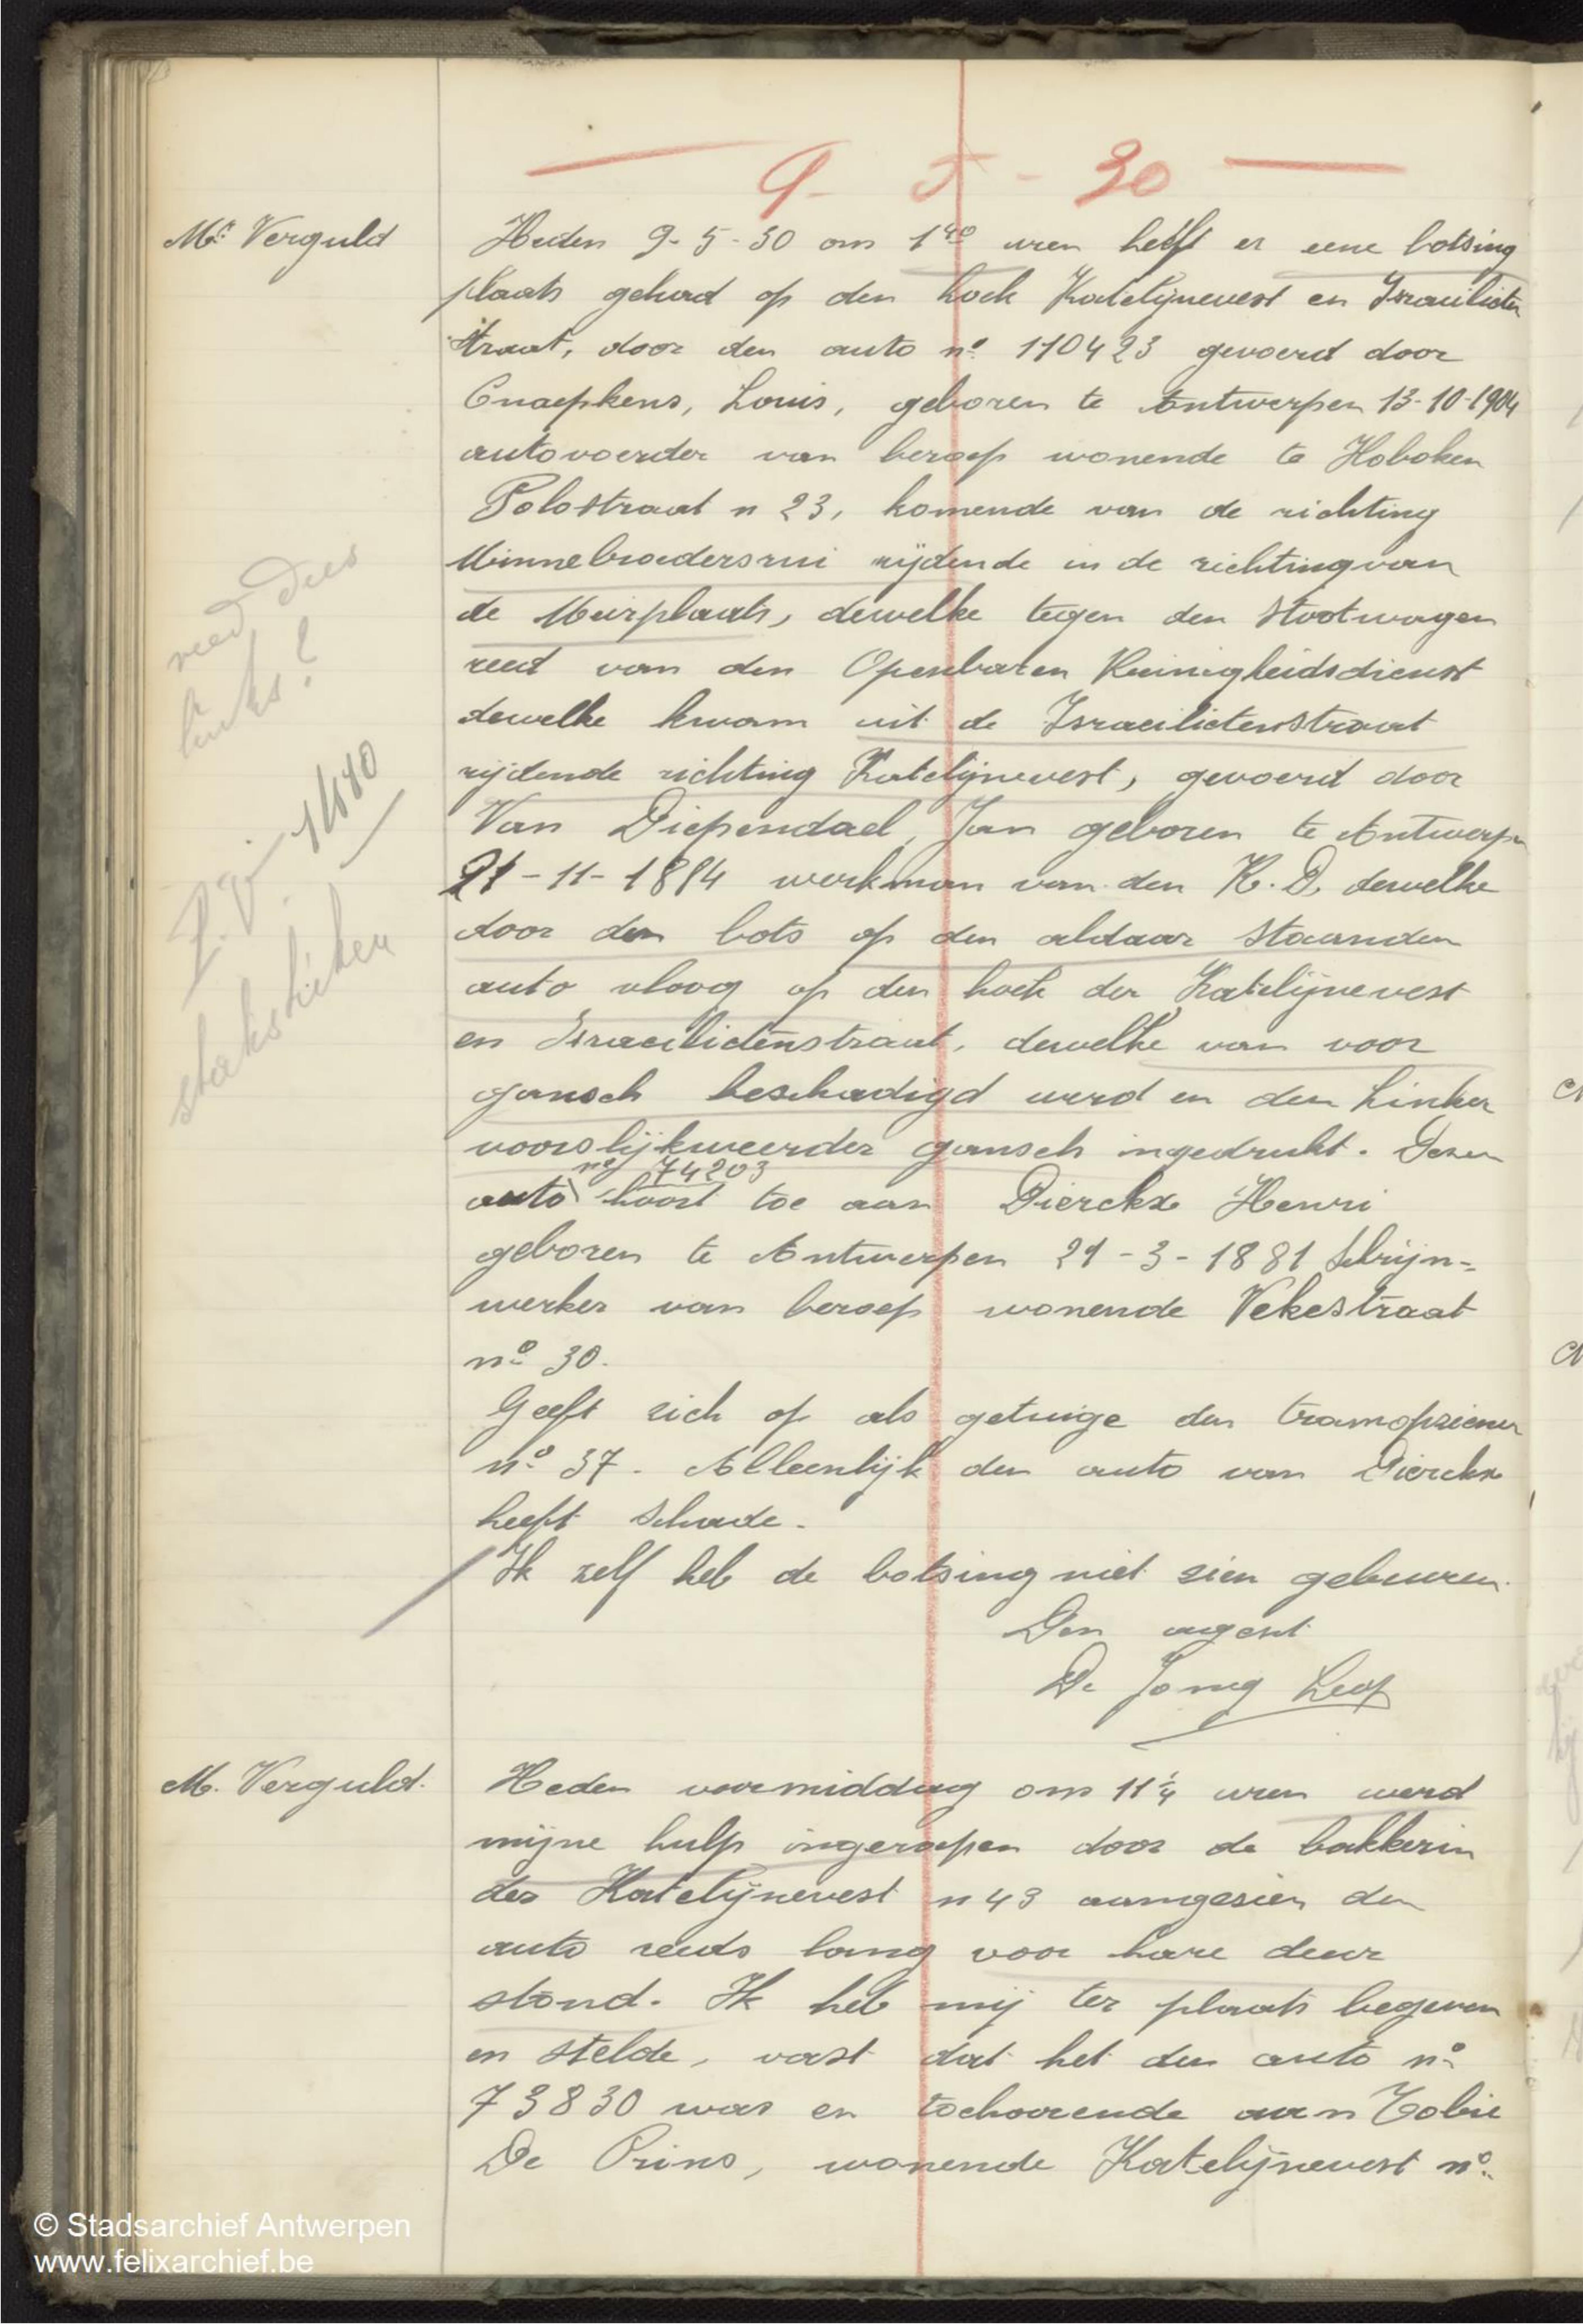 9 - 5 - 30
Mr Verguld
Heden 9-5-30 om 1 40 uren heeft er eene botsing
plaats gehad op den hoek Katelijnevest en Israelieten
straat, door den auto no 110423 gevoerd door
Cnaepkens, Louis, geboren te Antwerpen 13-10-1904
autovoerder van beroep wonende te Hoboken
Polostraat n 23, komende van de richting
Minnebroedersrui rijdende in de richting van
de Meirplaats, dewelke tegen den stootwagen
reed van den Openbaren Reinigheidsdienst
dewelke kwam uit de Israelietenstraat
rijdende richting Katelijnevest, gevoerd door
Van Diependael, Jan geboren te Antwerpen
21-11-1884 werkman van den R.D. dewelke
door den bots op den aldaar staanden
auto vloog op den hoek der Katelijnevest
en Israelietenstraat, dewelke van voor
gansch beschadigd werd en den linker
voorslijkweerder gansch ingedrukt. Dezen
no 74203
auto hoort toe aan Dierckx Henri
geboren te Antwerpen 21-3-1881 schrijn-
werker van beroep wonende Vekestraat
no 30.
Geeft zich op als getuige den tramopziener
no 37. Alleenlijk den auto van Dierckx
heeft schade.
Ik zelf heb de botsing niet zien gebeuren.
Den agent
De Jong Leop
reed dees
links?
M. Verguld.
Heden voormiddag om 11 1/4 uren werd
mijne hulp ingeroepen door de bakkerin
der Katelijnevest n 43 aangezien den
auto reeds lang voor hare deur
stond. Ik heb mij ter plaats begeven
en stelde, vast dat het den auto no
73830 was en toehoorende aan Tobie
De Prins, wonende Katelijnevest no.
© Stadsarchief Antwerpen
www.felixarchief.be